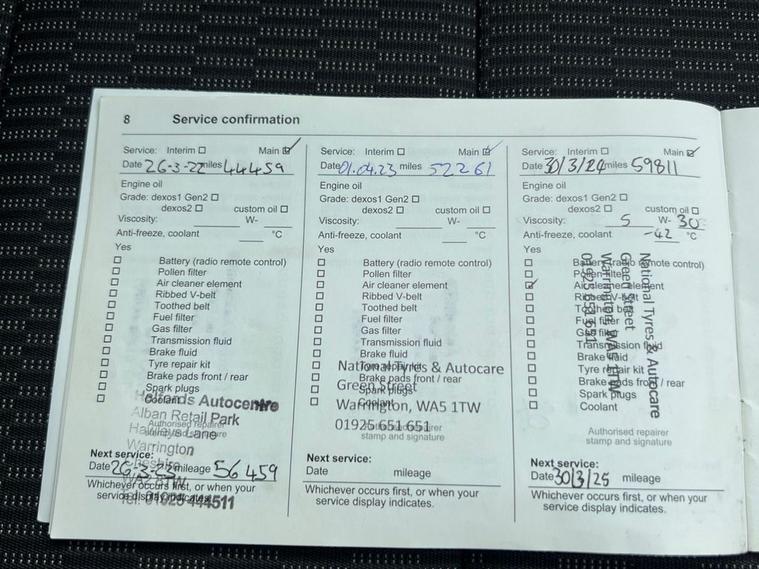 8 Service confirmation
Service: Interim Main
Date 26-3-22 miles 44459
Engine oil
Grade: dexos1 Gen2
dexos2 custom oil
Viscosity: W-
Anti-freeze, coolant °C
Yes
Battery (radio remote control)
Pollen filter
Air cleaner element
Ribbed V-belt
Toothed belt
Fuel filter
Gas filter
Transmission fluid
Brake fluid
Tyre repair kit
Brake pads front / rear
Spark plugs
Coolant
Halfords Autocentre
Alban Retail Park
Authorised repairer
stamp and signature
Hawleys Lane
Warrington
Cheshire
Tel: 01925 444511
Next service:
Date 26-3-23 mileage 56459
Whichever occurs first, or when your
service display indicates.
Service: Interim Main
Date 01.04.23 miles 52261
Engine oil
Grade: dexos1 Gen2
dexos2 custom oil
Viscosity: W-
Anti-freeze, coolant °C
Yes
Battery (radio remote control)
Pollen filter
Air cleaner element
Ribbed V-belt
Toothed belt
Fuel filter
Gas filter
Transmission fluid
Brake fluid
Tyre repair kit
Brake pads front / rear
Spark plugs
Coolant
National Tyres & Autocare
Green Street
Warrington, WA5 1TW
01925 651 651
Authorised repairer
stamp and signature
Next service:
Date mileage
Whichever occurs first, or when your
service display indicates.
Service: Interim Main
Date 30/3/24 miles 59811
Engine oil
Grade: dexos1 Gen2
dexos2 custom oil
Viscosity: 5 W- 30
Anti-freeze, coolant -42 °C
Yes
Battery (radio remote control)
Pollen filter
Air cleaner element
Ribbed V-belt
Toothed belt
Fuel filter
Gas filter
Transmission fluid
Brake fluid
Tyre repair kit
Brake pads front / rear
Spark plugs
Coolant
National Tyres & Autocare
Green Street
Warrington, WA5 1TW
01925 651 651
Authorised repairer
stamp and signature
Next service:
Date 30/3/25 mileage
Whichever occurs first, or when your
service display indicates.